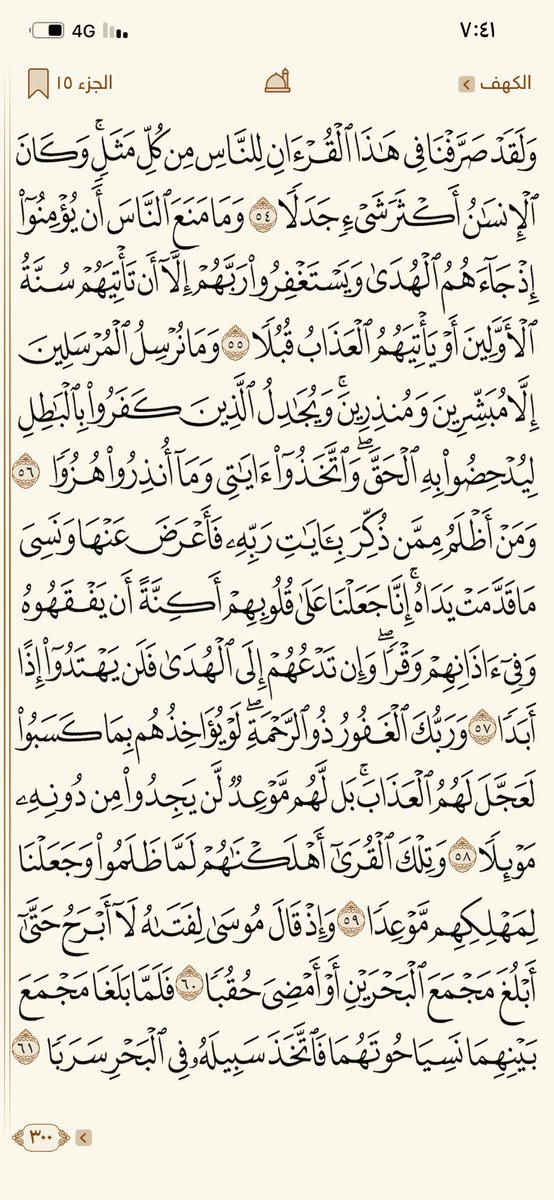 4G ٧:٤١
الكهف الجزء ١٥
وَلَقَدْ صَرَّفْنَا فِى هَٰذَا ٱلْقُرْءَانِ لِلنَّاسِ مِن كُلِّ مَثَلٍۢ ۚ وَكَانَ
ٱلْإِنسَٰنُ أَكْثَرَ شَىْءٍۢ جَدَلًۭا ٥٤ وَمَا مَنَعَ ٱلنَّاسَ أَن يُؤْمِنُوٓا۟
إِذْ جَآءَهُمُ ٱلْهُدَىٰ وَيَسْتَغْفِرُوا۟ رَبَّهُمْ إِلَّآ أَن تَأْتِيَهُمْ سُنَّةُ
ٱلْأَوَّلِينَ أَوْ يَأْتِيَهُمُ ٱلْعَذَابُ قُبُلًۭا ٥٥ وَمَا نُرْسِلُ ٱلْمُرْسَلِينَ
إِلَّا مُبَشِّرِينَ وَمُنذِرِينَ ۚ وَيُجَٰدِلُ ٱلَّذِينَ كَفَرُوا۟ بِٱلْبَٰطِلِ
لِيُدْحِضُوا۟ بِهِ ٱلْحَقَّ ۖ وَٱتَّخَذُوٓا۟ ءَايَٰتِى وَمَآ أُنذِرُوا۟ هُزُوًۭا ٥٦
وَمَنْ أَظْلَمُ مِمَّن ذُكِّرَ بِـَٔايَٰتِ رَبِّهِۦ فَأَعْرَضَ عَنْهَا وَنَسِىَ
مَا قَدَّمَتْ يَدَاهُ ۚ إِنَّا جَعَلْنَا عَلَىٰ قُلُوبِهِمْ أَكِنَّةً أَن يَفْقَهُوهُ
وَفِىٓ ءَاذَانِهِمْ وَقْرًۭا ۖ وَإِن تَدْعُهُمْ إِلَى ٱلْهُدَىٰ فَلَن يَهْتَدُوٓا۟ إِذًا
أَبَدًۭا ٥٧ وَرَبُّكَ ٱلْغَفُورُ ذُو ٱلرَّحْمَةِ ۖ لَوْ يُؤَاخِذُهُم بِمَا كَسَبُوا۟
لَعَجَّلَ لَهُمُ ٱلْعَذَابَ ۚ بَل لَّهُم مَّوْعِدٌۭ لَّن يَجِدُوا۟ مِن دُونِهِۦ
مَوْئِلًۭا ٥٨ وَتِلْكَ ٱلْقُرَىٰٓ أَهْلَكْنَٰهُمْ لَمَّا ظَلَمُوا۟ وَجَعَلْنَا
لِمَهْلِكِهِم مَّوْعِدًۭا ٥٩ وَإِذْ قَالَ مُوسَىٰ لِفَتَىٰهُ لَآ أَبْرَحُ حَتَّىٰٓ
أَبْلُغَ مَجْمَعَ ٱلْبَحْرَيْنِ أَوْ أَمْضِىَ حُقُبًۭا ٦٠ فَلَمَّا بَلَغَا مَجْمَعَ
بَيْنِهِمَا نَسِيَا حُوتَهُمَا فَٱتَّخَذَ سَبِيلَهُۥ فِى ٱلْبَحْرِ سَرَبًۭا ٦١
٣٠٠